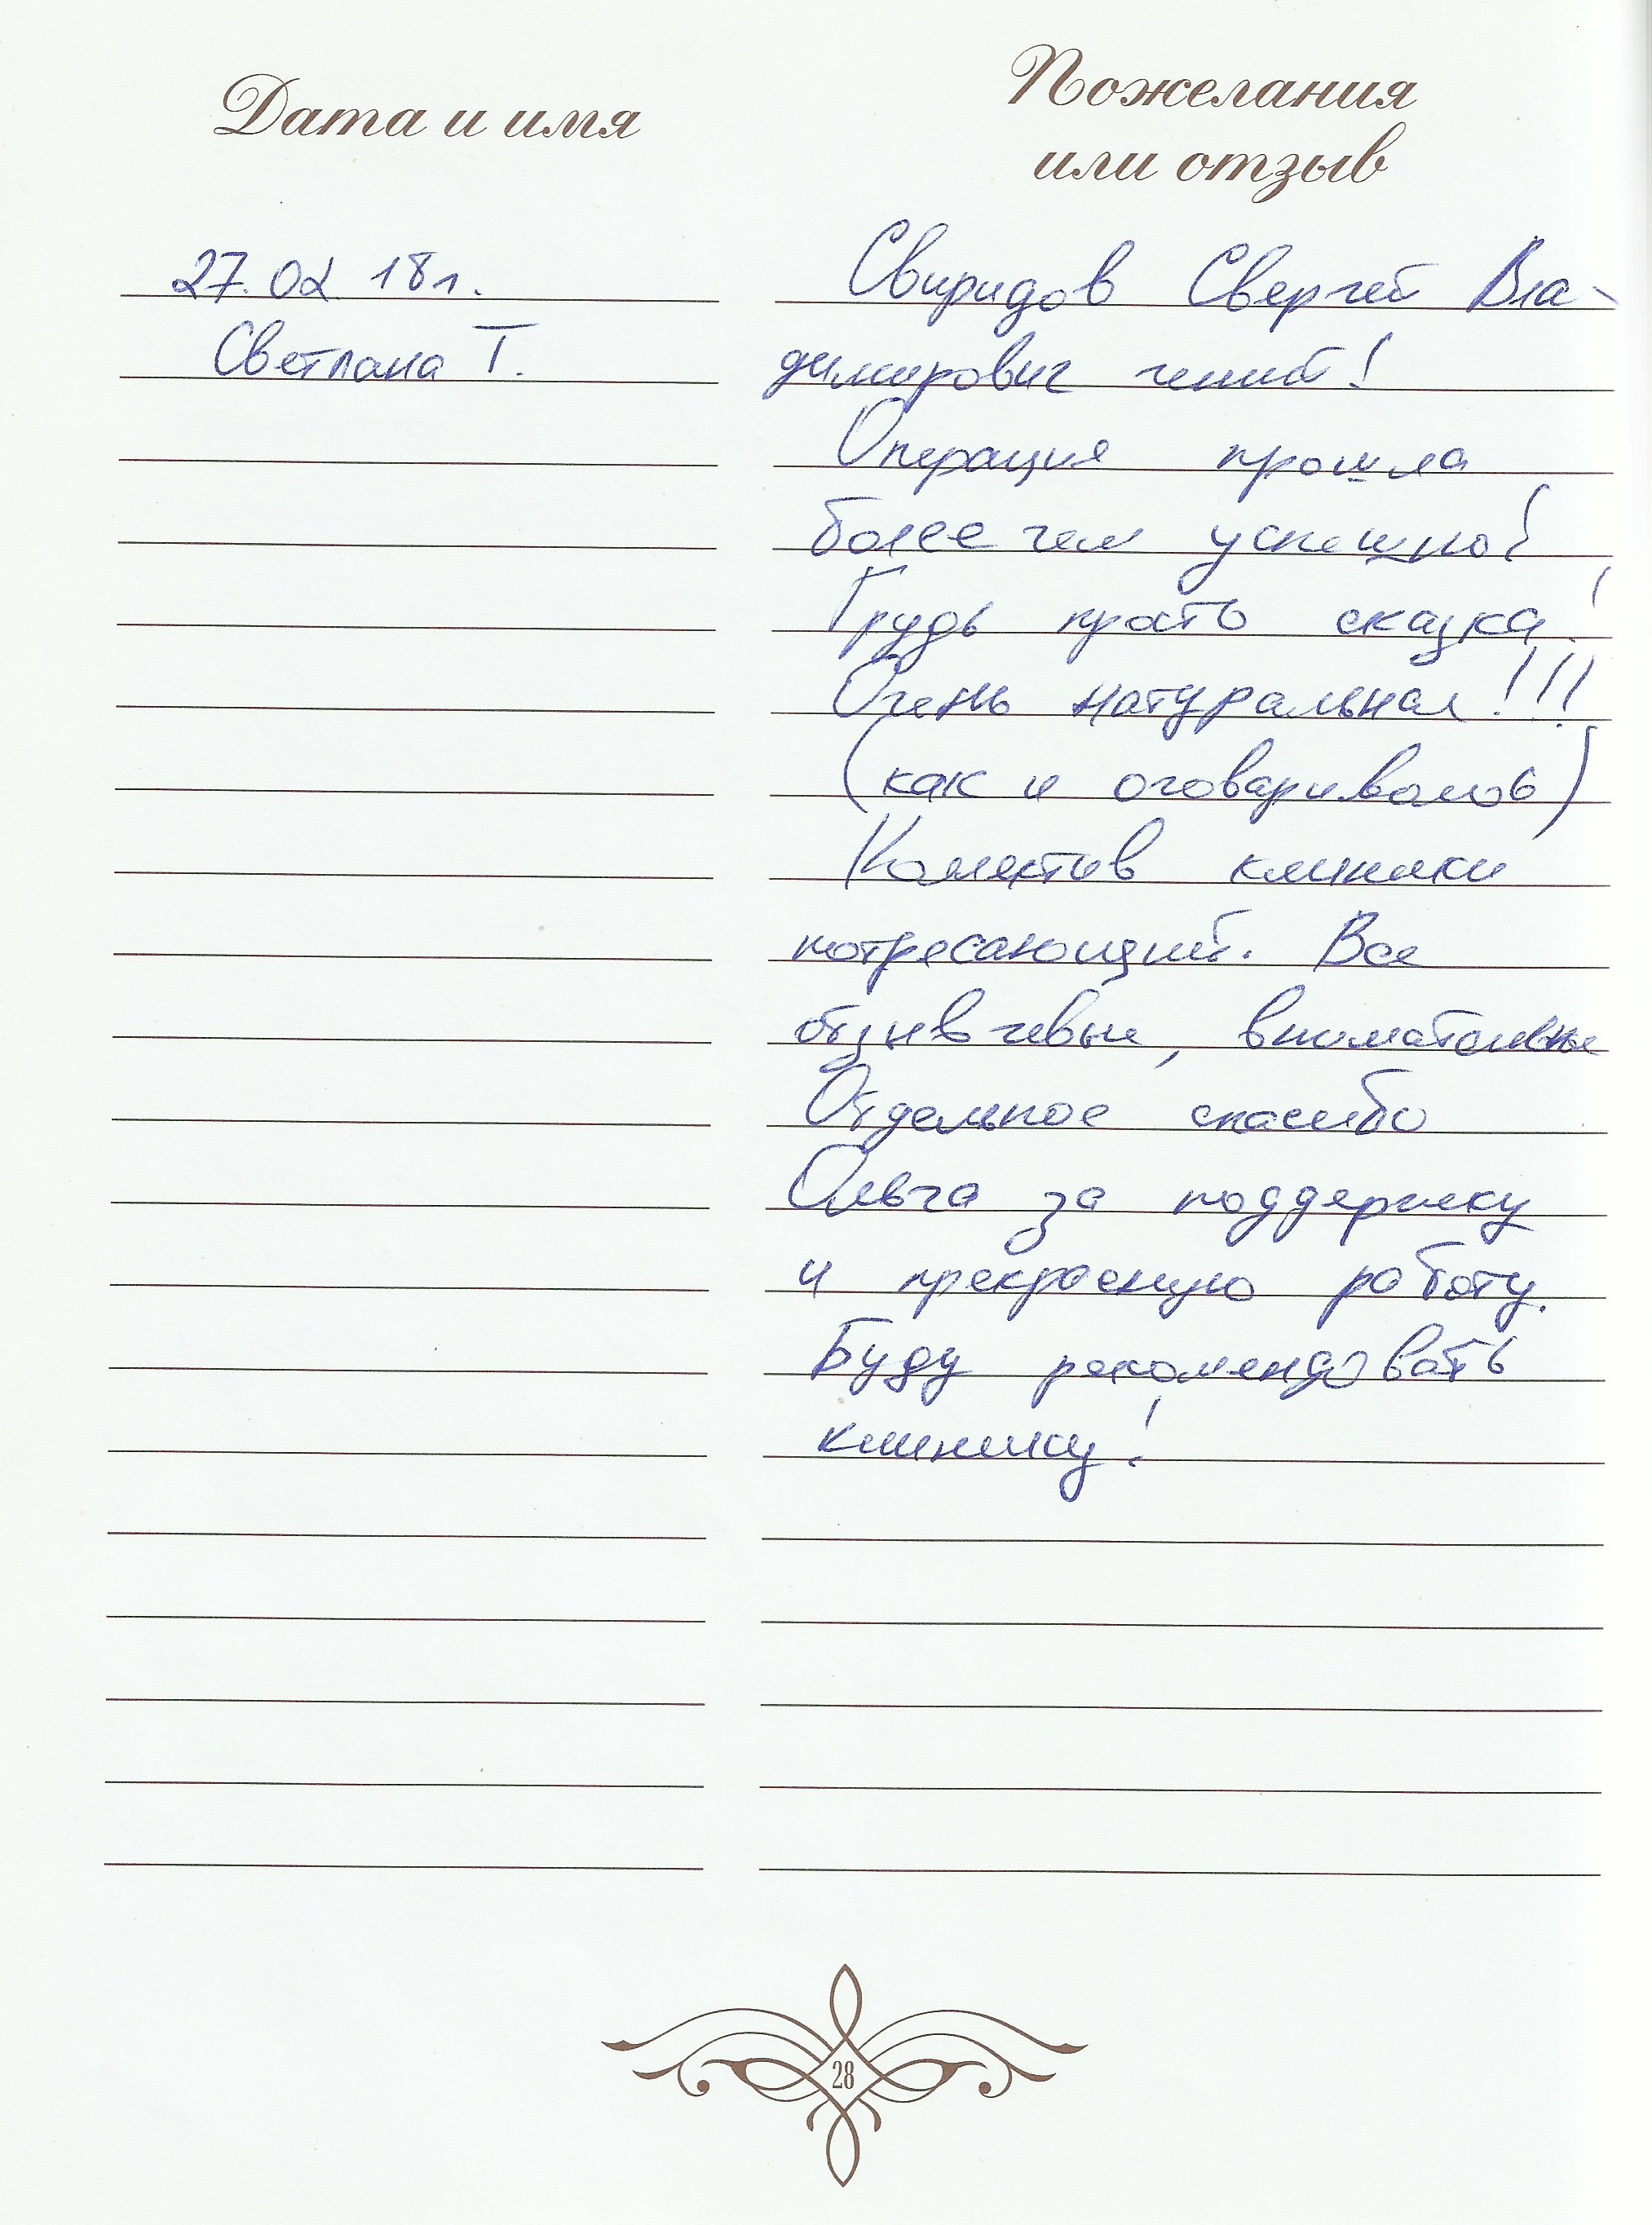 Дата и имя
Пожелания
или отзыв
27.02 18г.
Светлана Т.
Свиридов Свергей Вла-
димирович гений!
Операция прошла
более чем успешно!
Грудь просто сказка!
Очень натуральная!!!
(как и оговаривалось)
Коллектив клиники
потресающий. Все
отзывчевые, внимательные
Отдельное спасибо
Ольга за поддержку
и прекрасную работу.
Буду рекомендовать
клинику!
28